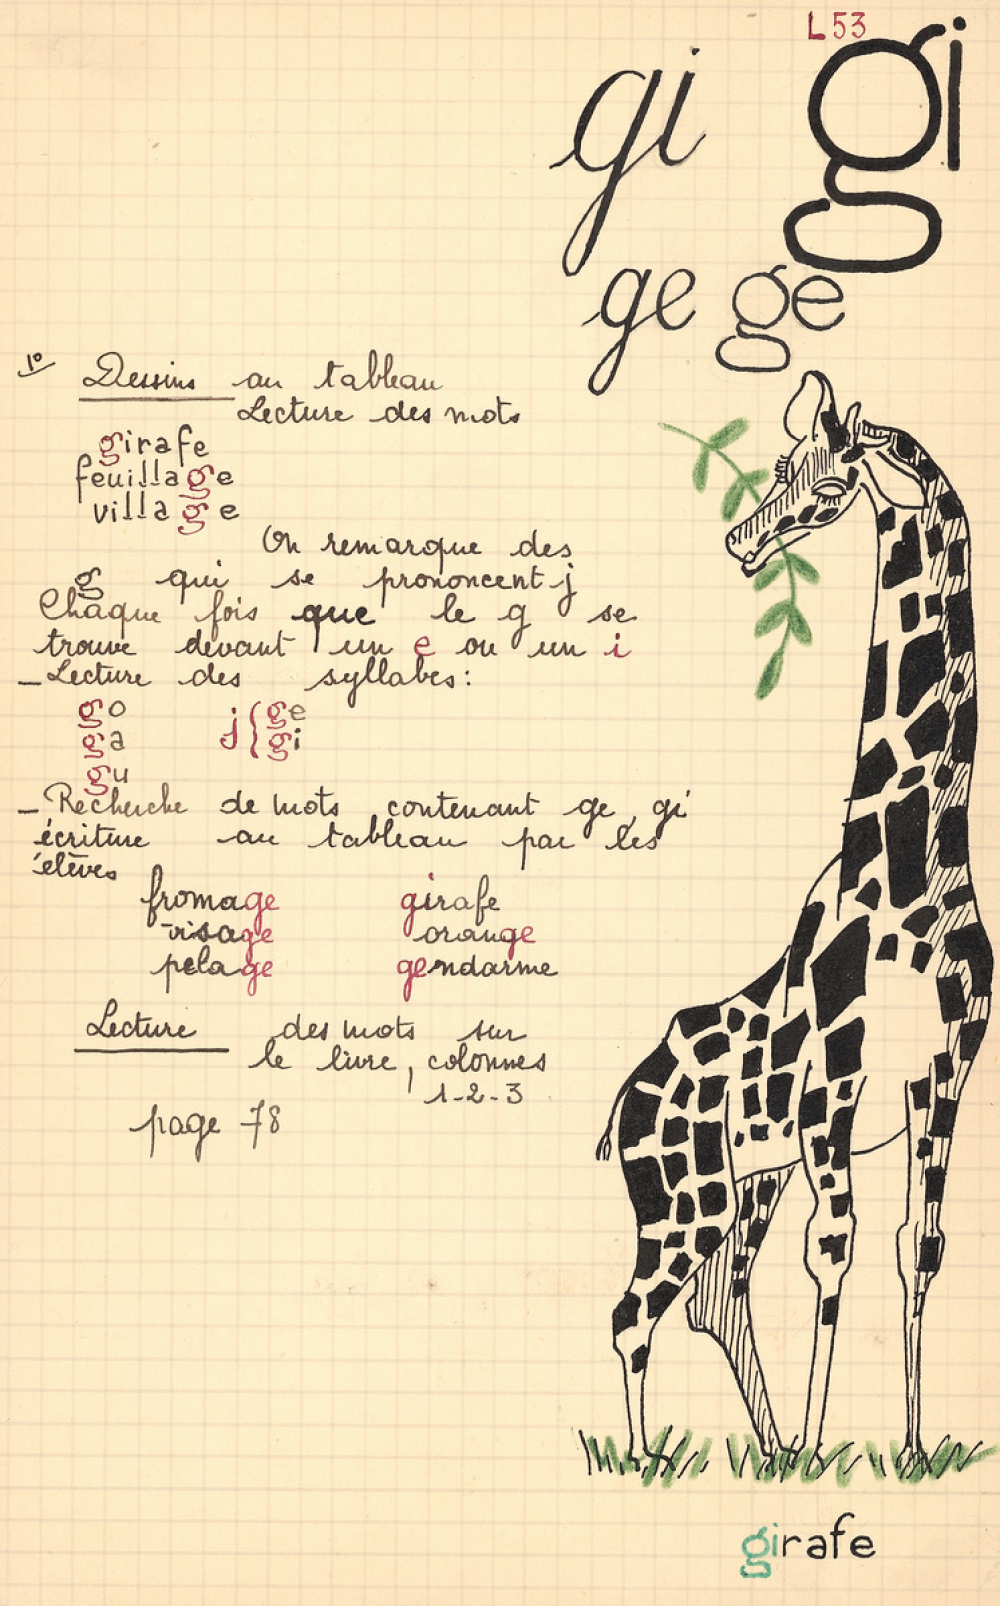 L53
gi gi
ge ge
1º Dessins au tableau
Lecture des mots
girafe
feuillage
village
On remarque des
g qui se prononcent j
Chaque fois que le g se
trouve devant un e ou un i
_ Lecture des syllabes:
go j { ge
ga gi
gu
_ Recherche de mots contenant ge, gi
écriture au tableau par les
élèves
fromage girafe
visage orange
pelage gendarme
Lecture des mots sur
le livre, colonnes
1-2-3
page 78
girafe